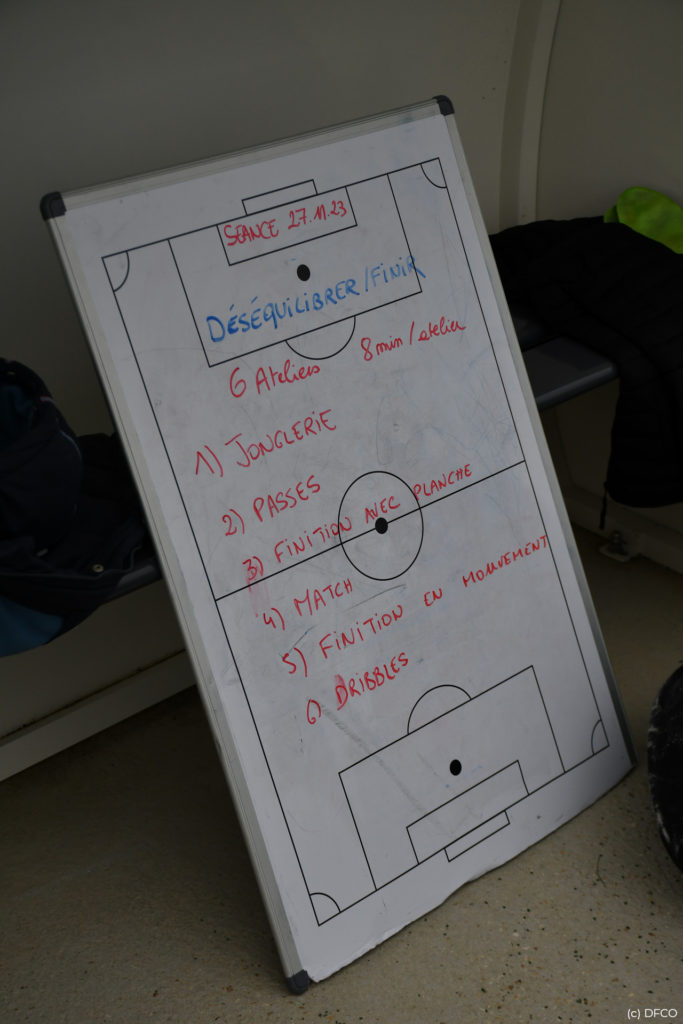 SEANCE 27.11.23
DÉSÉQUILIBRER/FINIR
6 Ateliers 8min/atelier
1) JONGLERIE
2) PASSES
3) FINITION AVEC PLANCHE
4) MATCH
5) FINITION EN MOUVEMENT
6) DRIBBLES
(c) DFCO